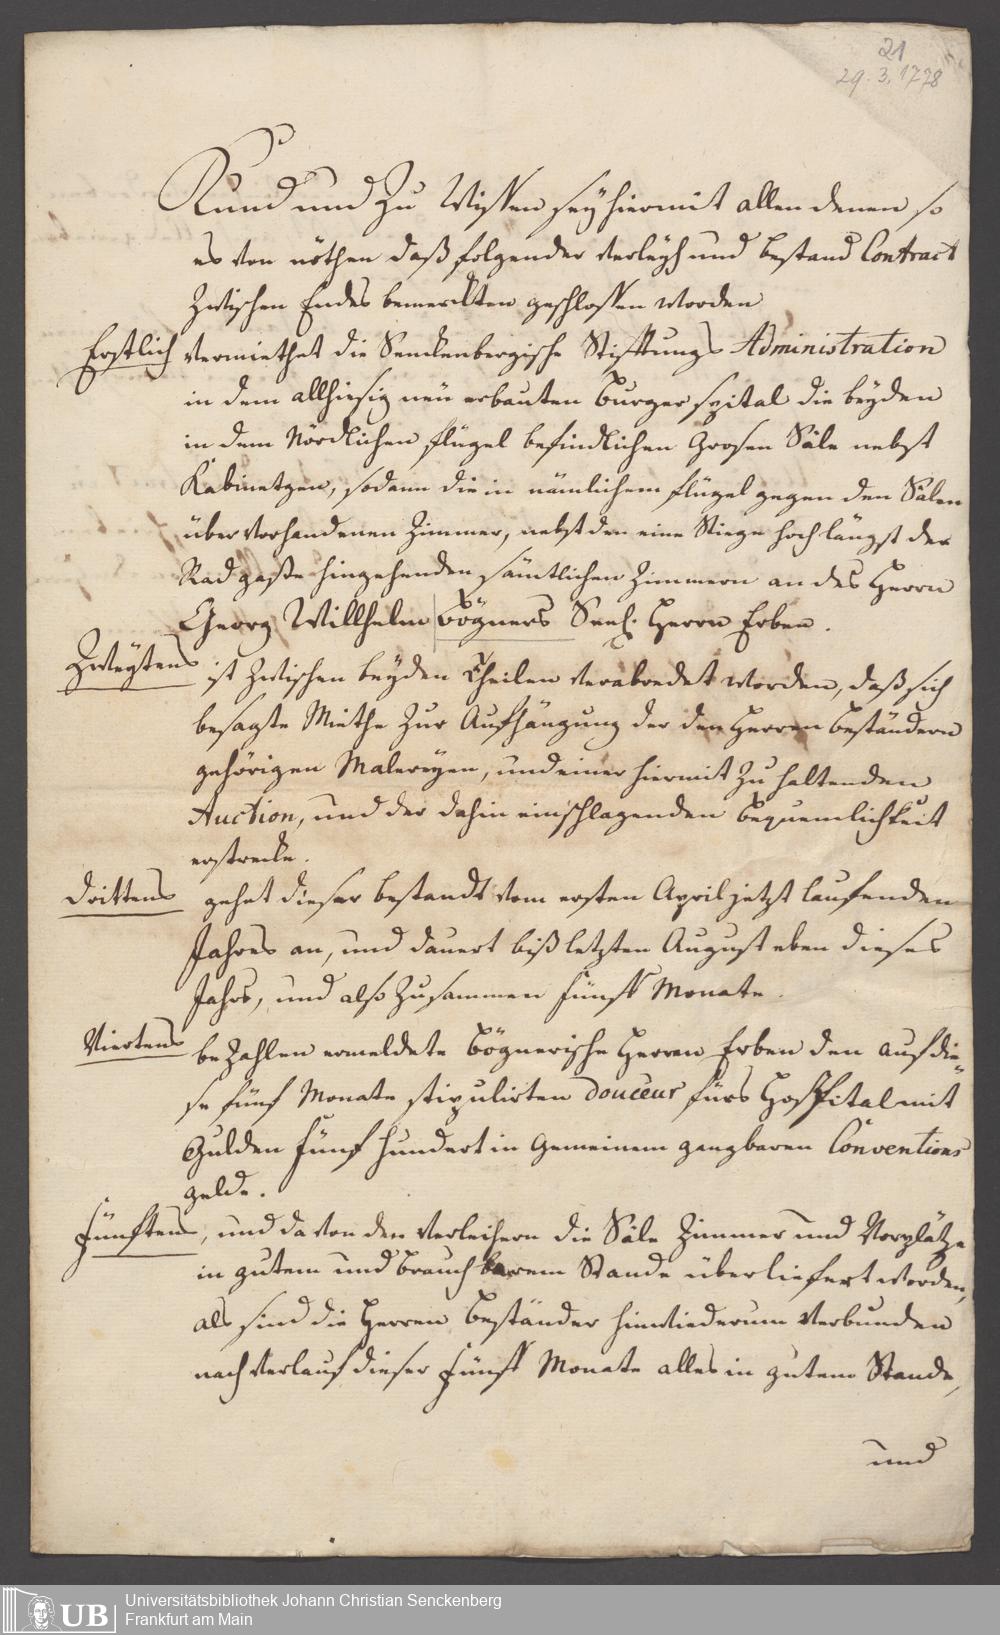 21
29.3.1778
Kund und Zu Wissen sey hiermit allen denen so
es von nöthen daß folgender Verleyh und Bestand Contract
Zwischen Endes bemerckten geschlossen worden
Erstlich Vermiethet die Senckenbergische Stifftungs Administration
in dem allhiesig neu erbauten Burger spital die beyden
in dem Nördlichen Flügel befindlichen Grosen Säle nebst
Kabinetgen, sodann die in nämlichem Flügel gegen den Sälen
über vorhandenen Zimmer, nebst den eine Stiege hoch längst der
Rad gaße hingehenden sämtlichen Zimmern an des Herrn
Georg Willhelm Bögners Seel. Herrn Erben.
Zweytens ist Zwischen beyden Theilen verabredet worden, daß sich
besagte Miethe Zur Aufhängung der den Herren Beständern
gehörigen Malereyen, und einer hiermit Zu haltenden
Auction, und der dahin einschlagenden Bequemlichkeit
erstrecke.
Drittens gehet dieser Bestandt vom ersten April jetzt laufenden
Jahres an, und dauert biß letzten August eben dieses
Jahrs, und also Zusammen fünff Monate.
Viertens beZahlen ermeldete Bögnerische Herren Erben den auf die=
se fünf Monate stipulirten Douceur fürs Hospital mit
Gulden fünf hundert in Gemeinem gangbaren Conventions
gelde.
Fünftens, und da von den Verleihern die Säle Zimmer und Vorplätze
in gutem und brauchbarem Stande überliefert worden,
als sind die Herren Beständer hinwiederum verbunden
nach Verlauf dieser fünff Monate alles in gutem Stande,
und
UB
Universitätsbibliothek Johann Christian Senckenberg
Frankfurt am Main